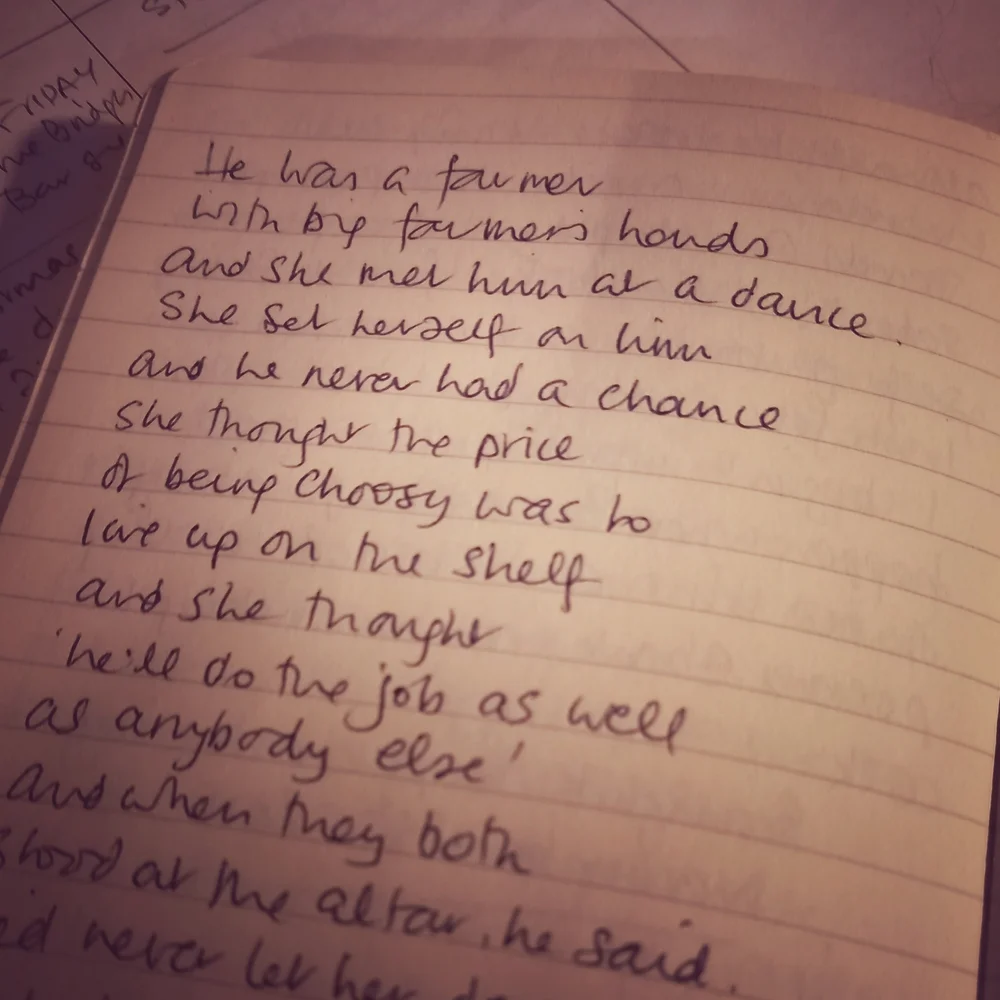 FRIDAY
Bar
He was a farmer
with big farmers hands
and she met him at a dance.
She set herself on him
and he never had a chance
She thought the price
of being choosy was to
live up on the shelf
and she thought
'he'll do the job as well
as anybody else'
and when they both
stood at the altar, he said.
never let her